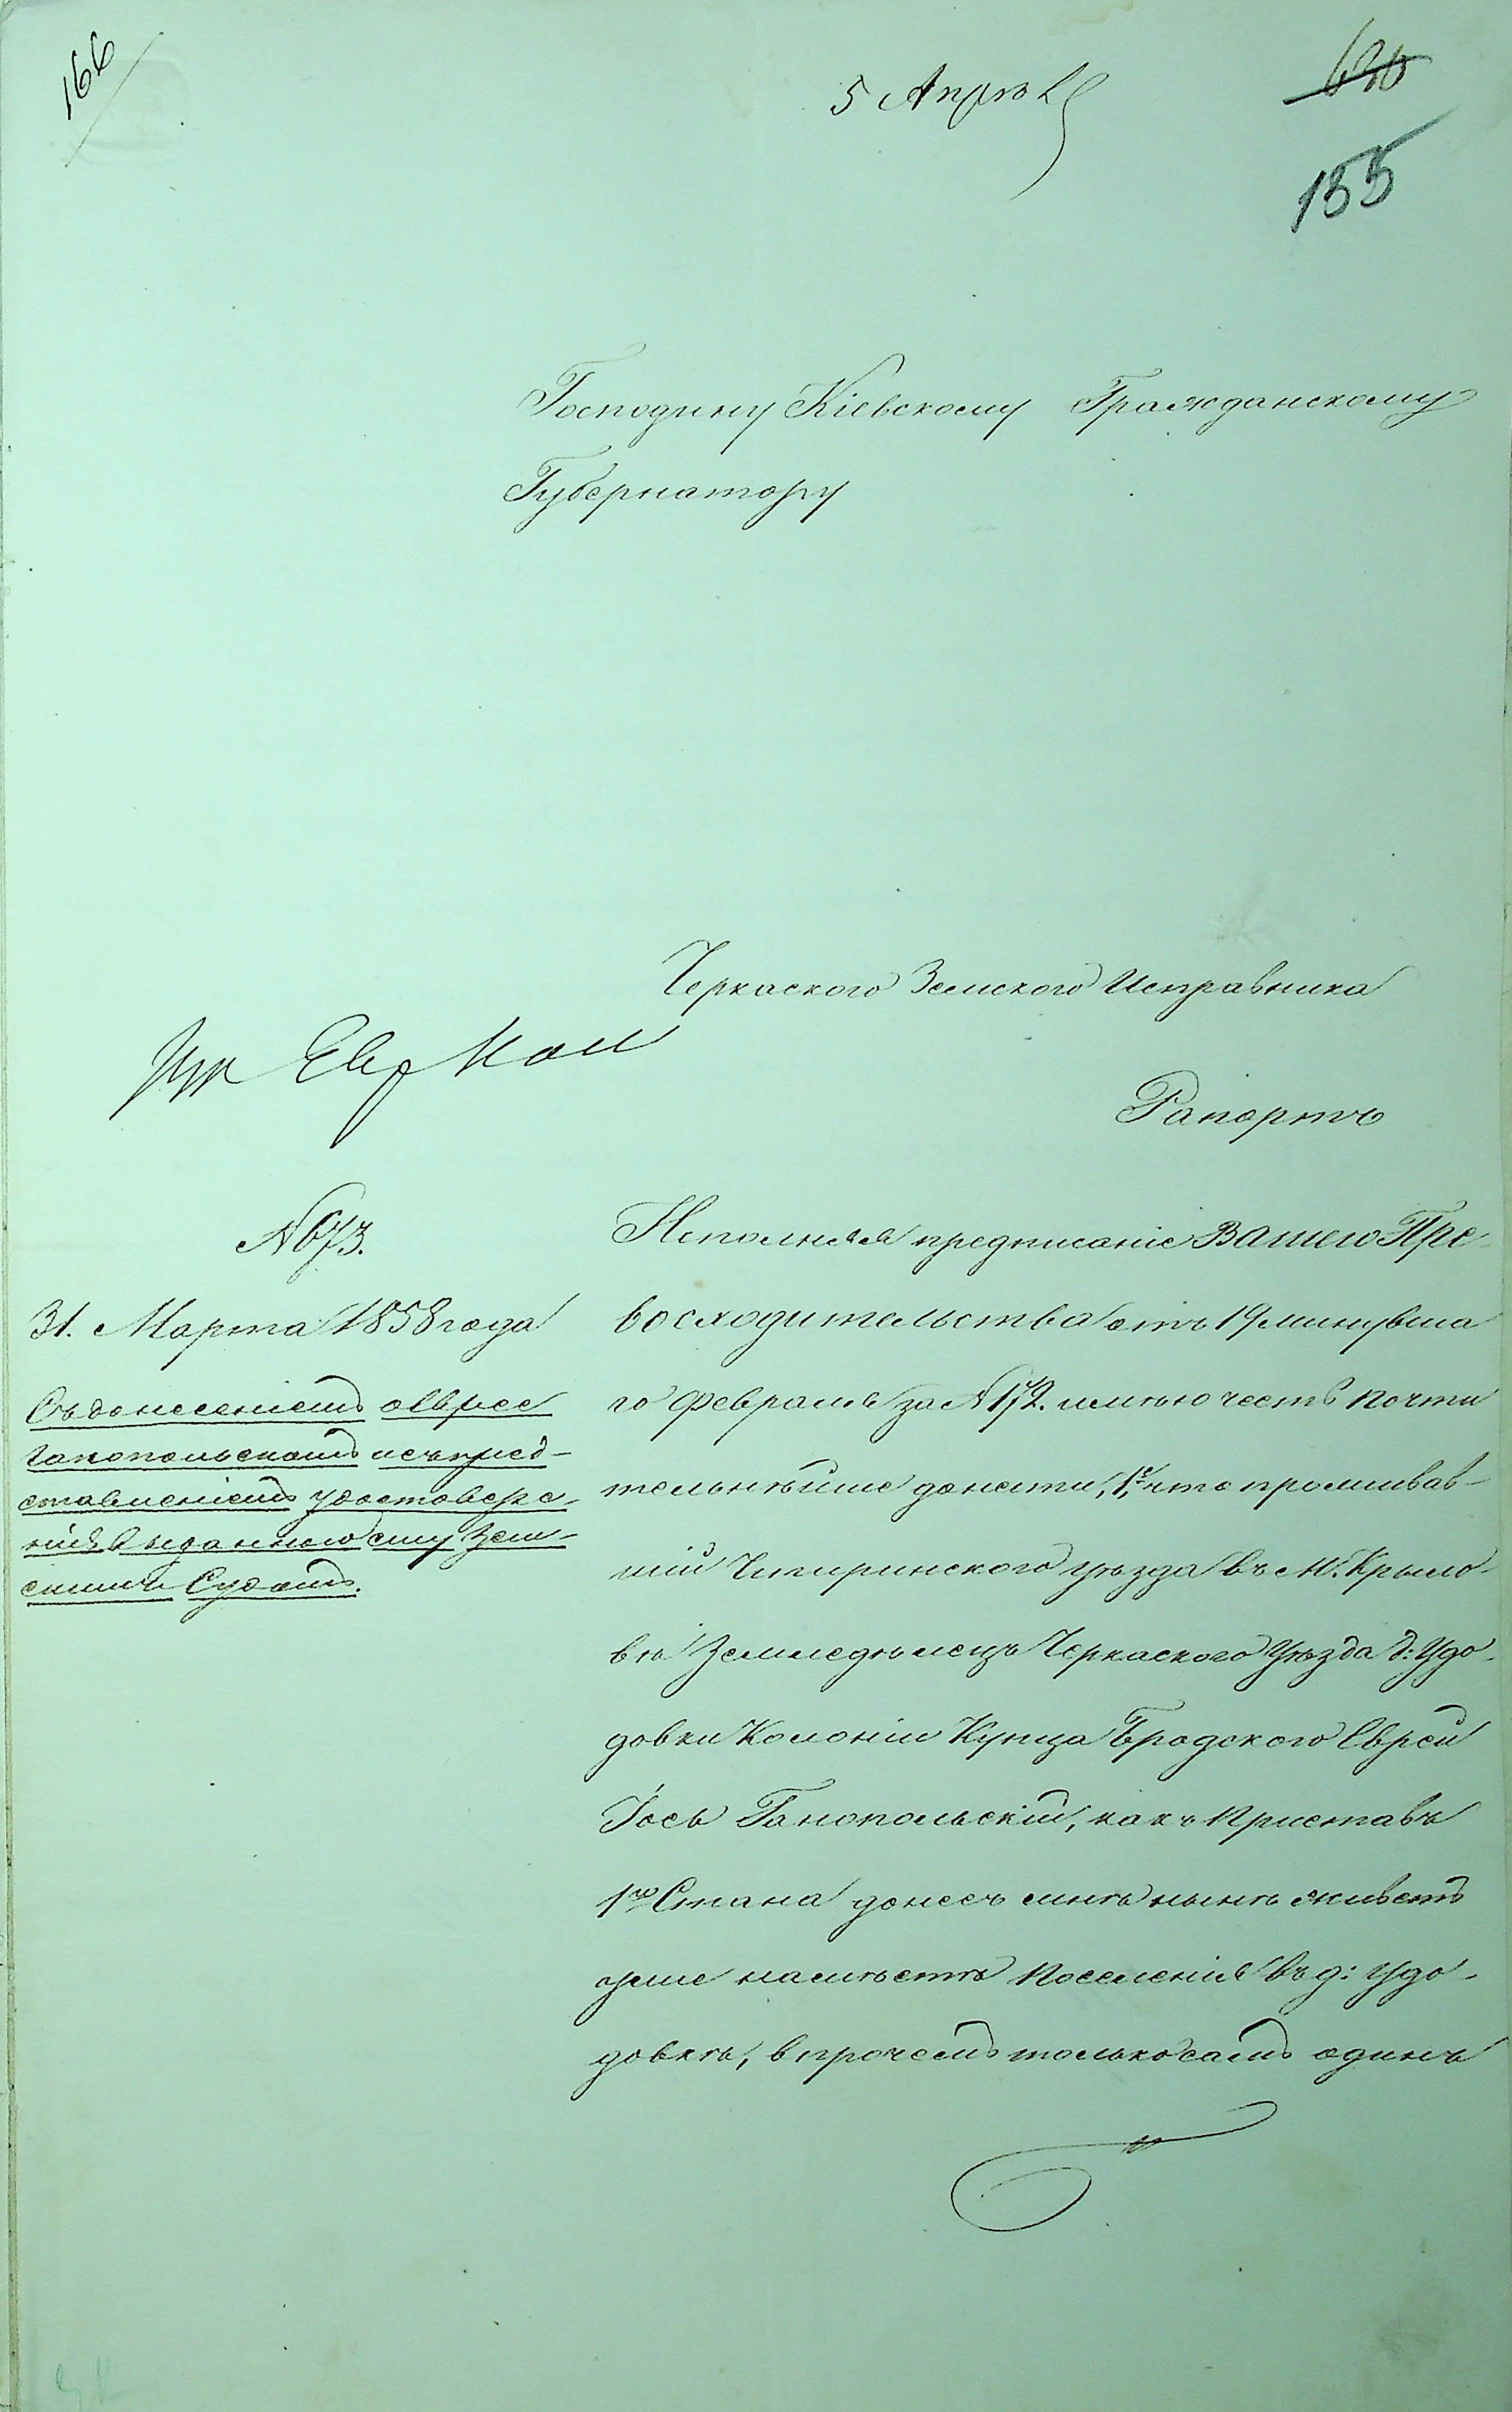 166
5 Апрѣля
155
Господину Кіевскому Гражданскому
Губернатору
Черкаского Земского Исправника
Рапортъ
№ 673.
31. Марта 1858 года
Съ донесеніемъ о Евреѣ
Ганопольскомъ и съ пред-
ставленіемъ удостовере-
нія выданного ему Зем-
скимъ Судомъ.
Исполняя предписаніе Вашего Пре-
восходительства отъ 19 минувша
го Февраля за № 172. имѣю честь почти
тельнѣйше донести, 1е, что проживав-
шій Чигиринского уѣзда въ м. Крыло-
вѣ Земледѣлецъ Черкаского Уѣзда д: Удо-
довки Колоніи Купца Бродского Еврей
Іось Ганопольскій, какъ Приставъ
1го Стана донесъ мнѣ нынѣ живетъ
уже на мѣстѣ поселенія въ д: Удо-
довкѣ, впрочемъ только самъ одинъ